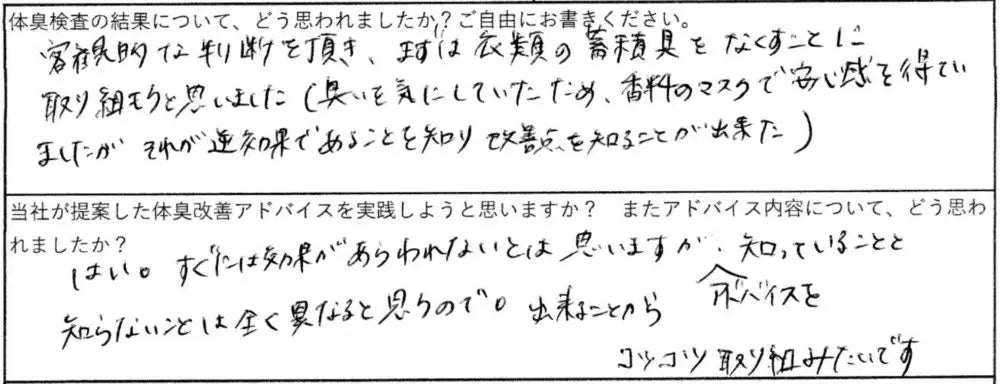 体臭検査の結果について、どう思われましたか？ご自由にお書きください。
客観的な判断を頂き、まずは衣類の蓄積臭をなくすことに
取り組もうと思いました（臭いを気にしていたため、香料のマスクで安心感を得てい
ましたが それが逆効果であることを知り 改善点を知ることが出来た）
当社が提案した体臭改善アドバイスを実践しようと思いますか？　またアドバイス内容について、どう思わ
れましたか？
はい。すぐには効果があらわれないとは思いますが、知っていることと
知らないことは全く異なると思うので。出来ることから アドバイスを
コツコツ取り組みたいです